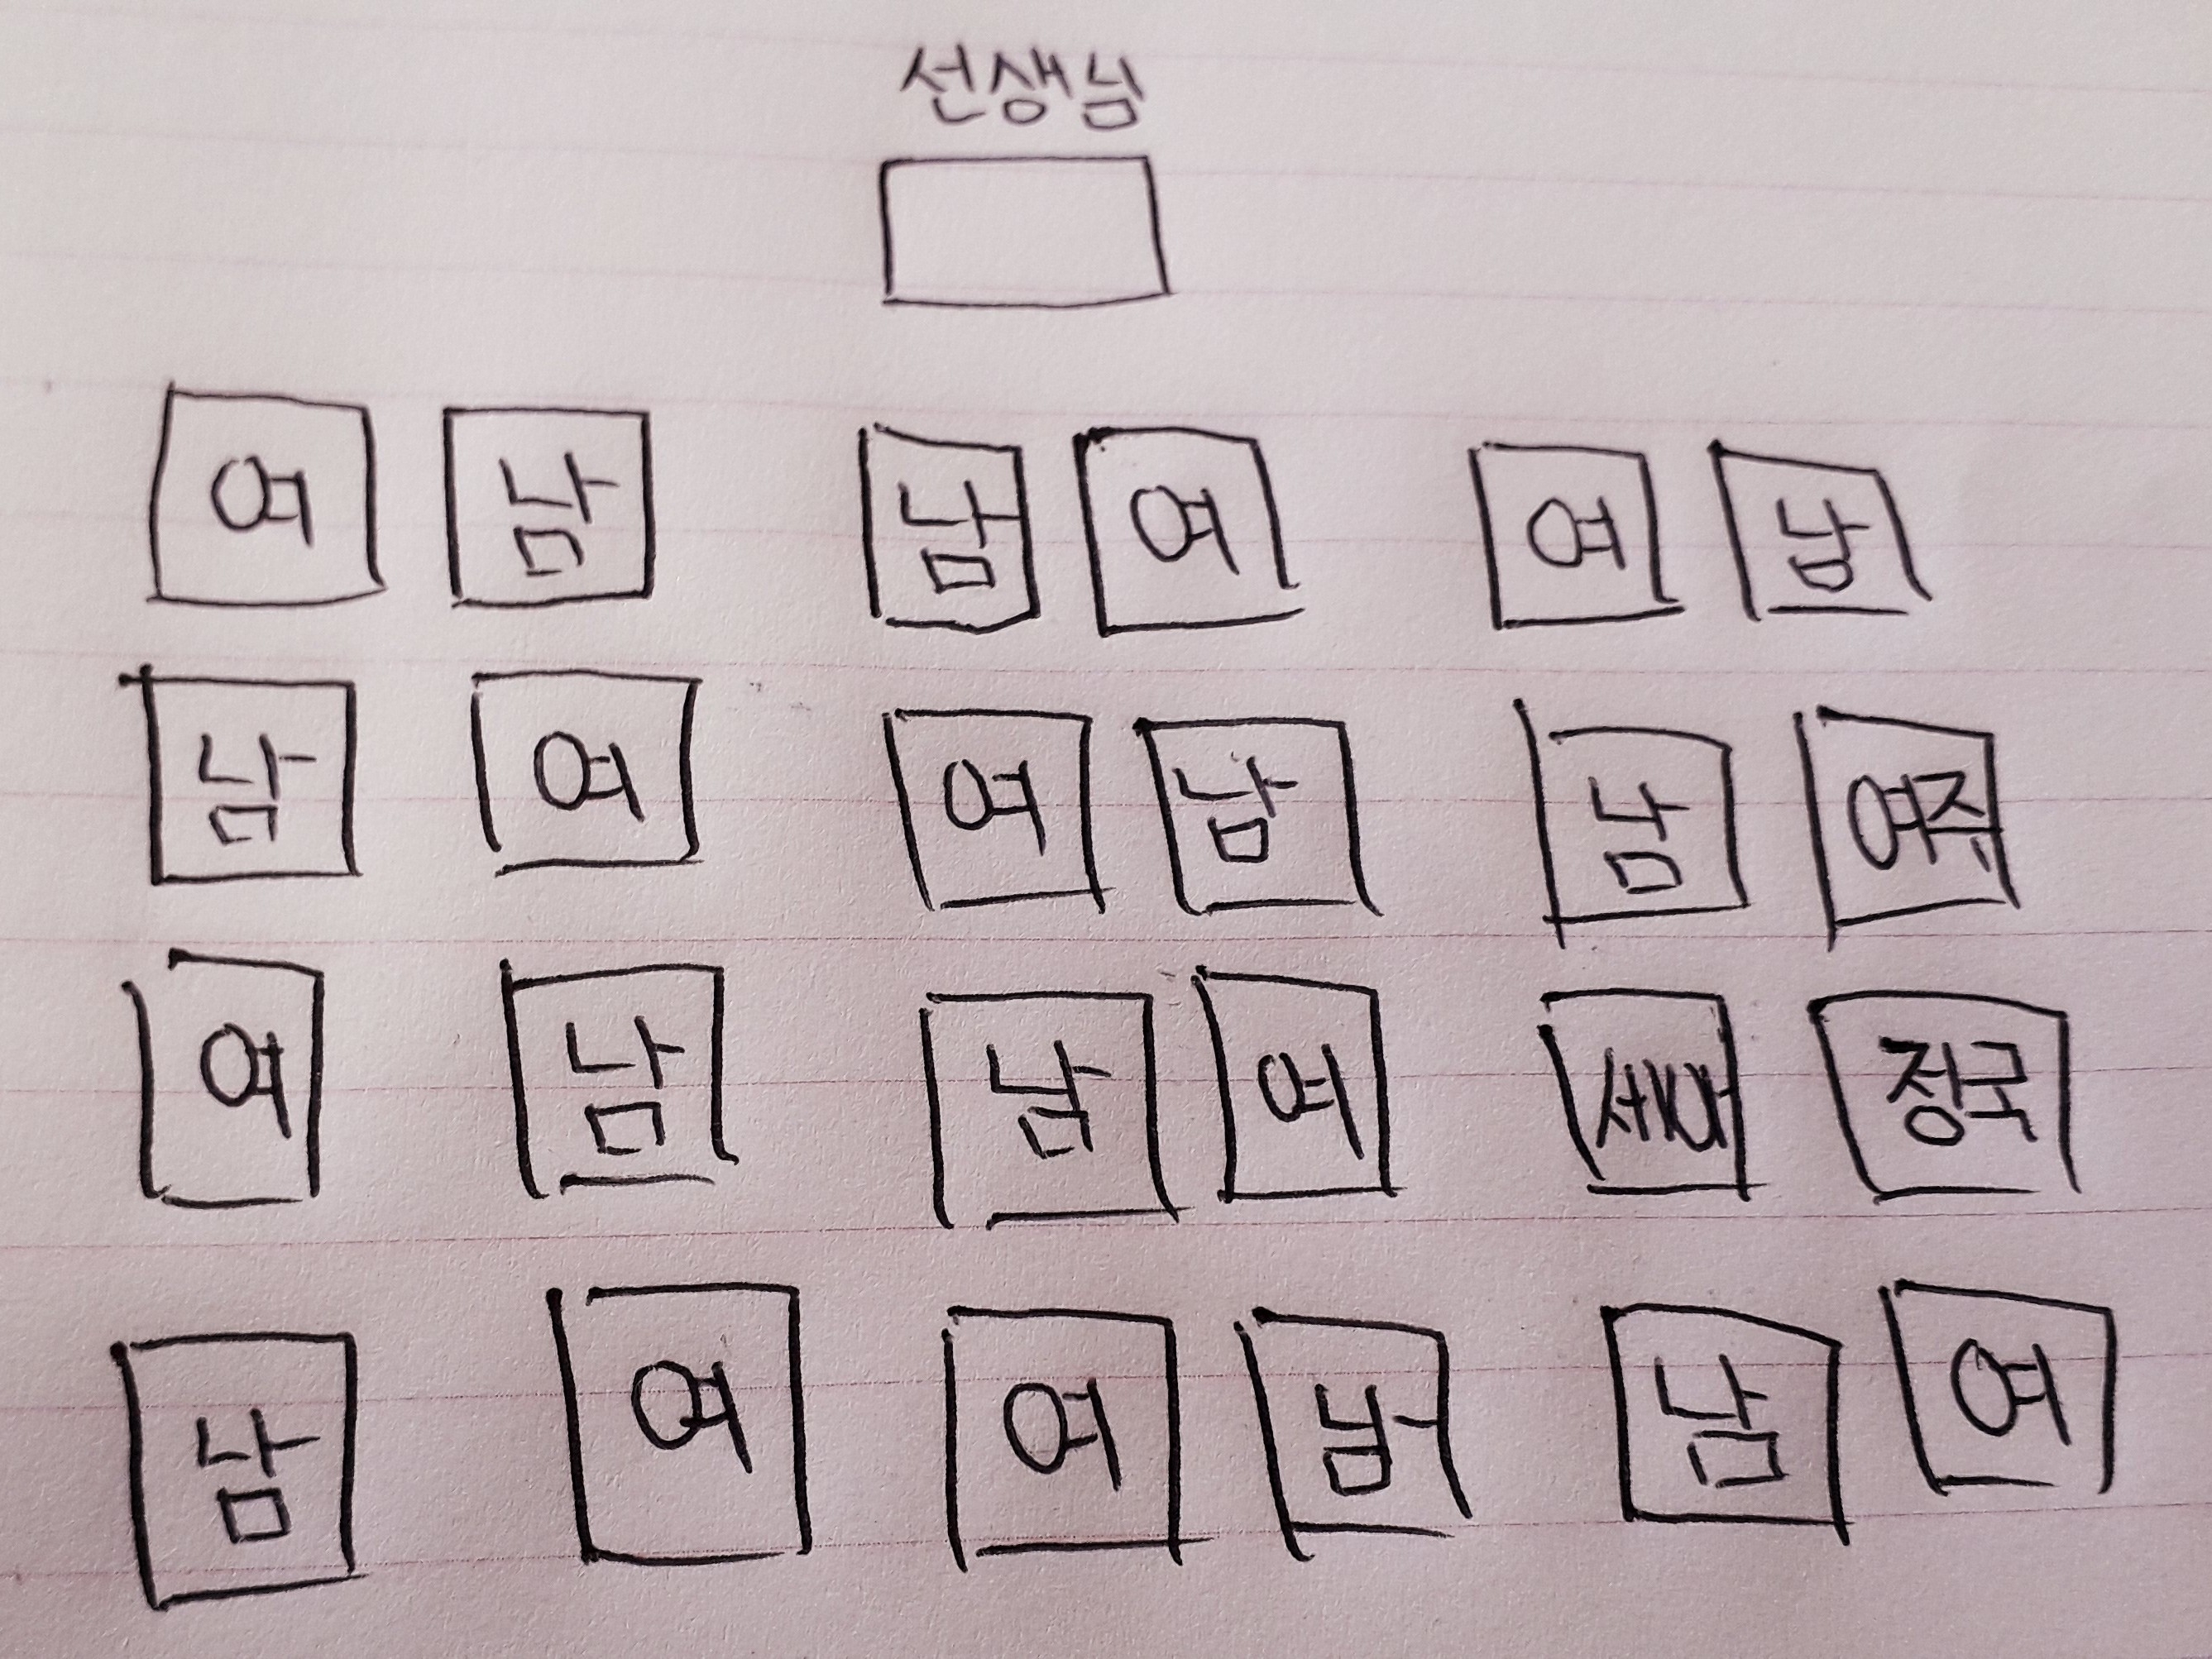 선생님
여 남 남 여 여 남
남 여 여 남 남 여주
여 남 남 여 정국
남 여 여 남 남 여